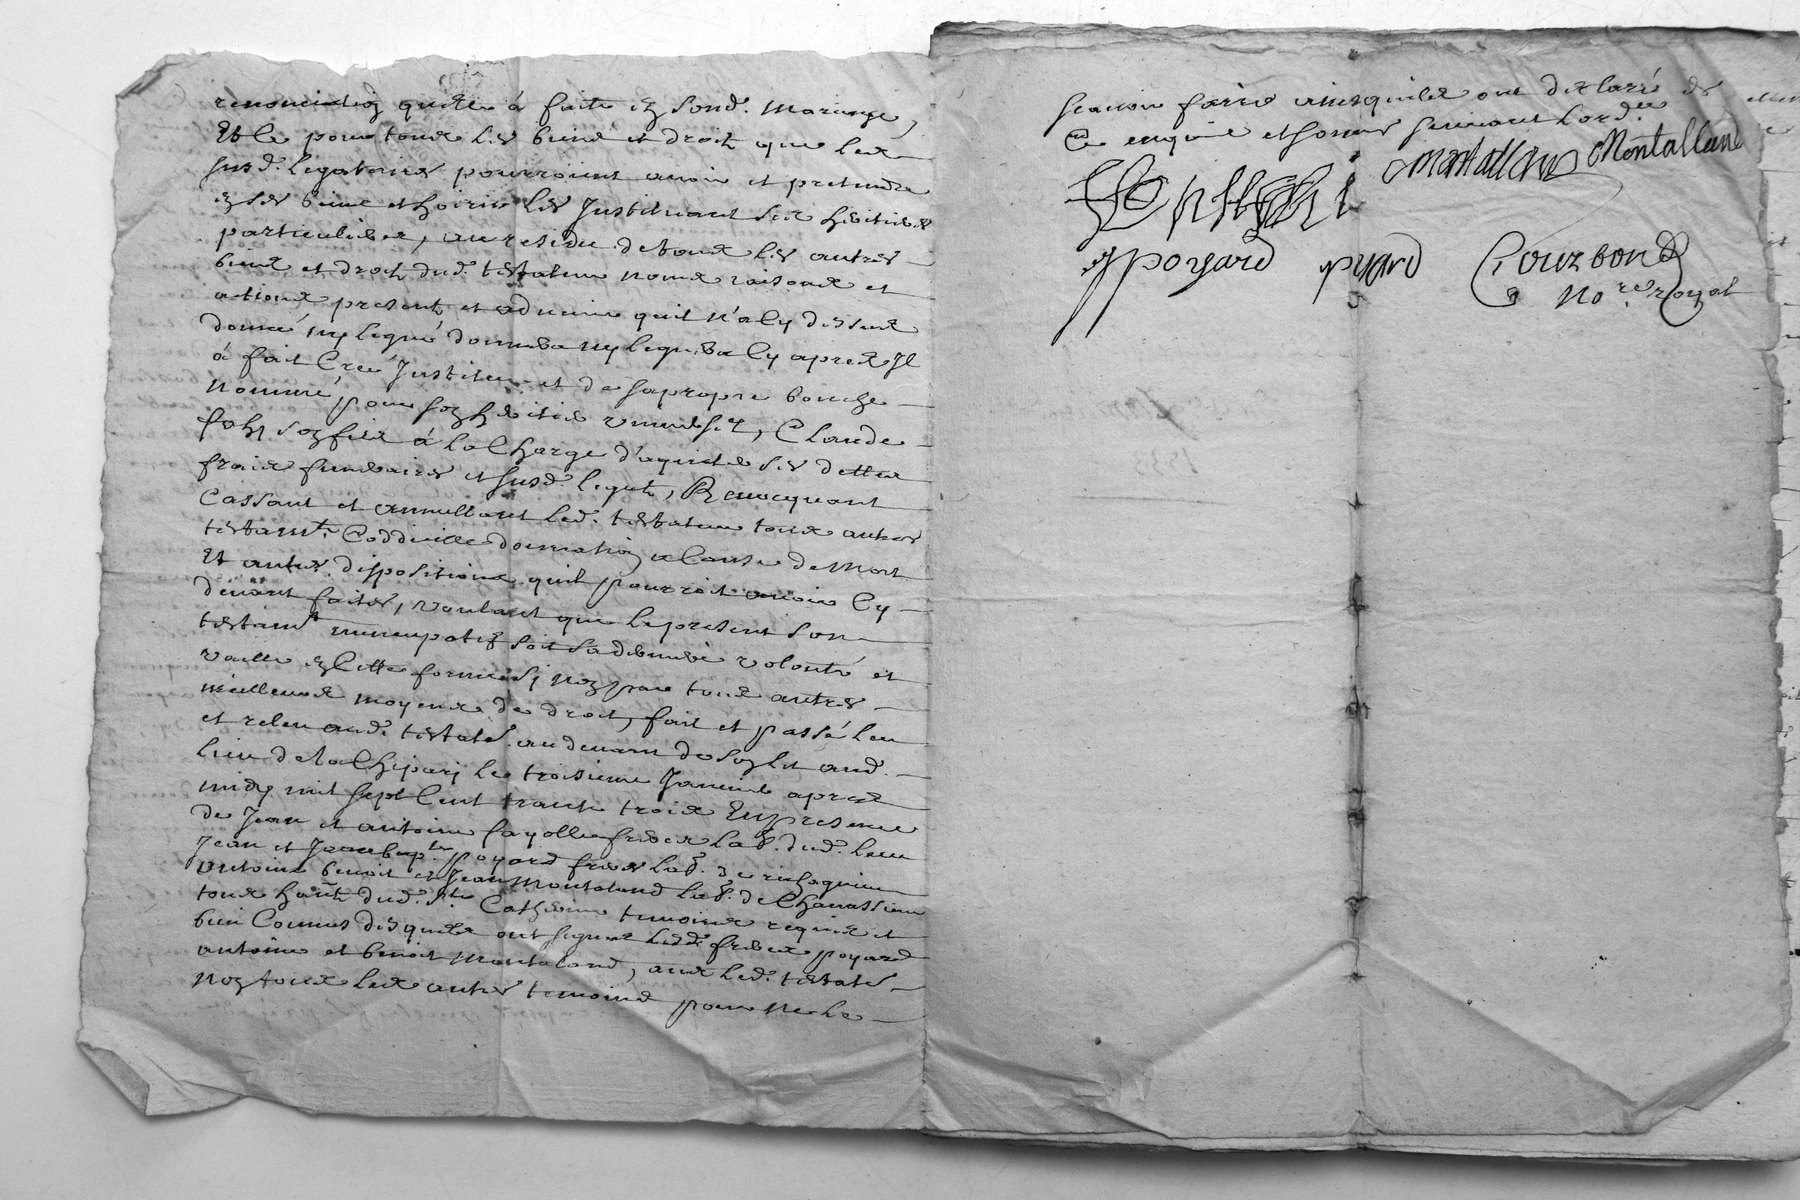 renonciation qu'elle à faite en sond. mariage,
Et ce pour tous les biens et droits que les
susd. legataires pourroient avoir et pretendre
en ses biens et hoirie les Instituant ses heritiers
particuliers, au residu de tous les autres
biens et droits dud. testateur noms raisons et
actions presents et advenir qu'il n'a cy dessus
donné ny legué donnera ny leguera cy apres Il
à fait creé Institué et de sa propre bouche
nommé, pour son heritier universel, Claude
son fils à la Charge d'aquiter ses dettes
frais funeraires et susd. legats, Revocquant
cassant et annullant led. testateur tous autres
testamts. Coddicille donnation a Cause de Mort
Et autres dispositions qu'il pourroit avoir cy
devant faites, voulant que le present son
testamt. nuncupatif soit sa derniere volonté et
vaille en cette forme si non par tous autres
meilleurs moyens de droit, fait et passé leu
et releu aud. testatr. au devant de son lit aud.
lieu de la Chipary le troisieme Janvier apres
midy mil sept cent trente trois En presence
de Jean et antoine fayolle freres lab. dud. lieu
Jean et Jacq. poyard freres lab. de
antoine benoit et Jean montaland lab. de Chavassieu
tous hants. dud. Ste. Catherine temoins requis et
bien Connus desquels ont signé lesd. freres poyard
antoine et benoit montaland, aud. led. testatr.
non tous les autres temoins pour ne le
scavoir faire ainsy qu'ils ont declaré de
ce enquis et sommés suivant l'ord.ce
montalland Montalland
jpoyard pyard Courbon
No.re royal